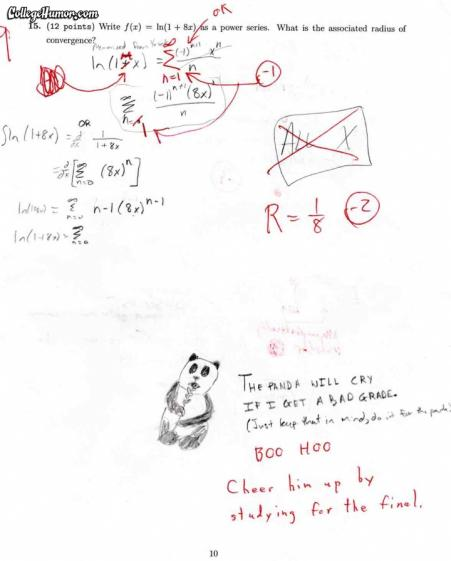 CollegeHumor.com
15. (12 points) Write f(x) = ln(1 + 8x) as a power series. What is the associated radius of
convergence?
OK
ln(1+x) = Σ n=1 ∞ (-1)^(n+1) x^n / n
-1
Σ n=1 (-1)^(n+1) (8x)^n / n
OR
∫ln(1+8x) = d/dx 1/(1+8x)
= d/dx [Σ n=0 ∞ (8x)^n]
ln(1+8x) = Σ n=0 ∞ n-1 (8x)^(n-1)
ln(1+8x) = Σ n=0 ∞
ALL X
R = 1/8 -2
THE PANDA WILL CRY
IF I GET A BAD GRADE.
(Just keep that in mind, do it for the panda)
BOO HOO
Cheer him up by
studying for the final.
10